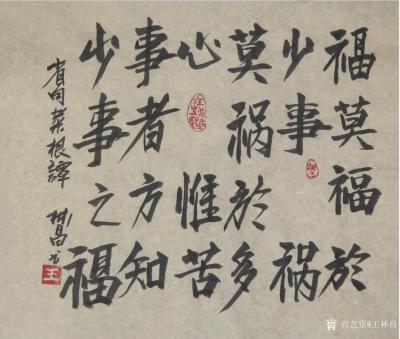 福莫福於
少事祸
莫祸於多
心惟苦
事者方知
少事之福
菜根譚
林昌书
王
兴艺堂@王林昌